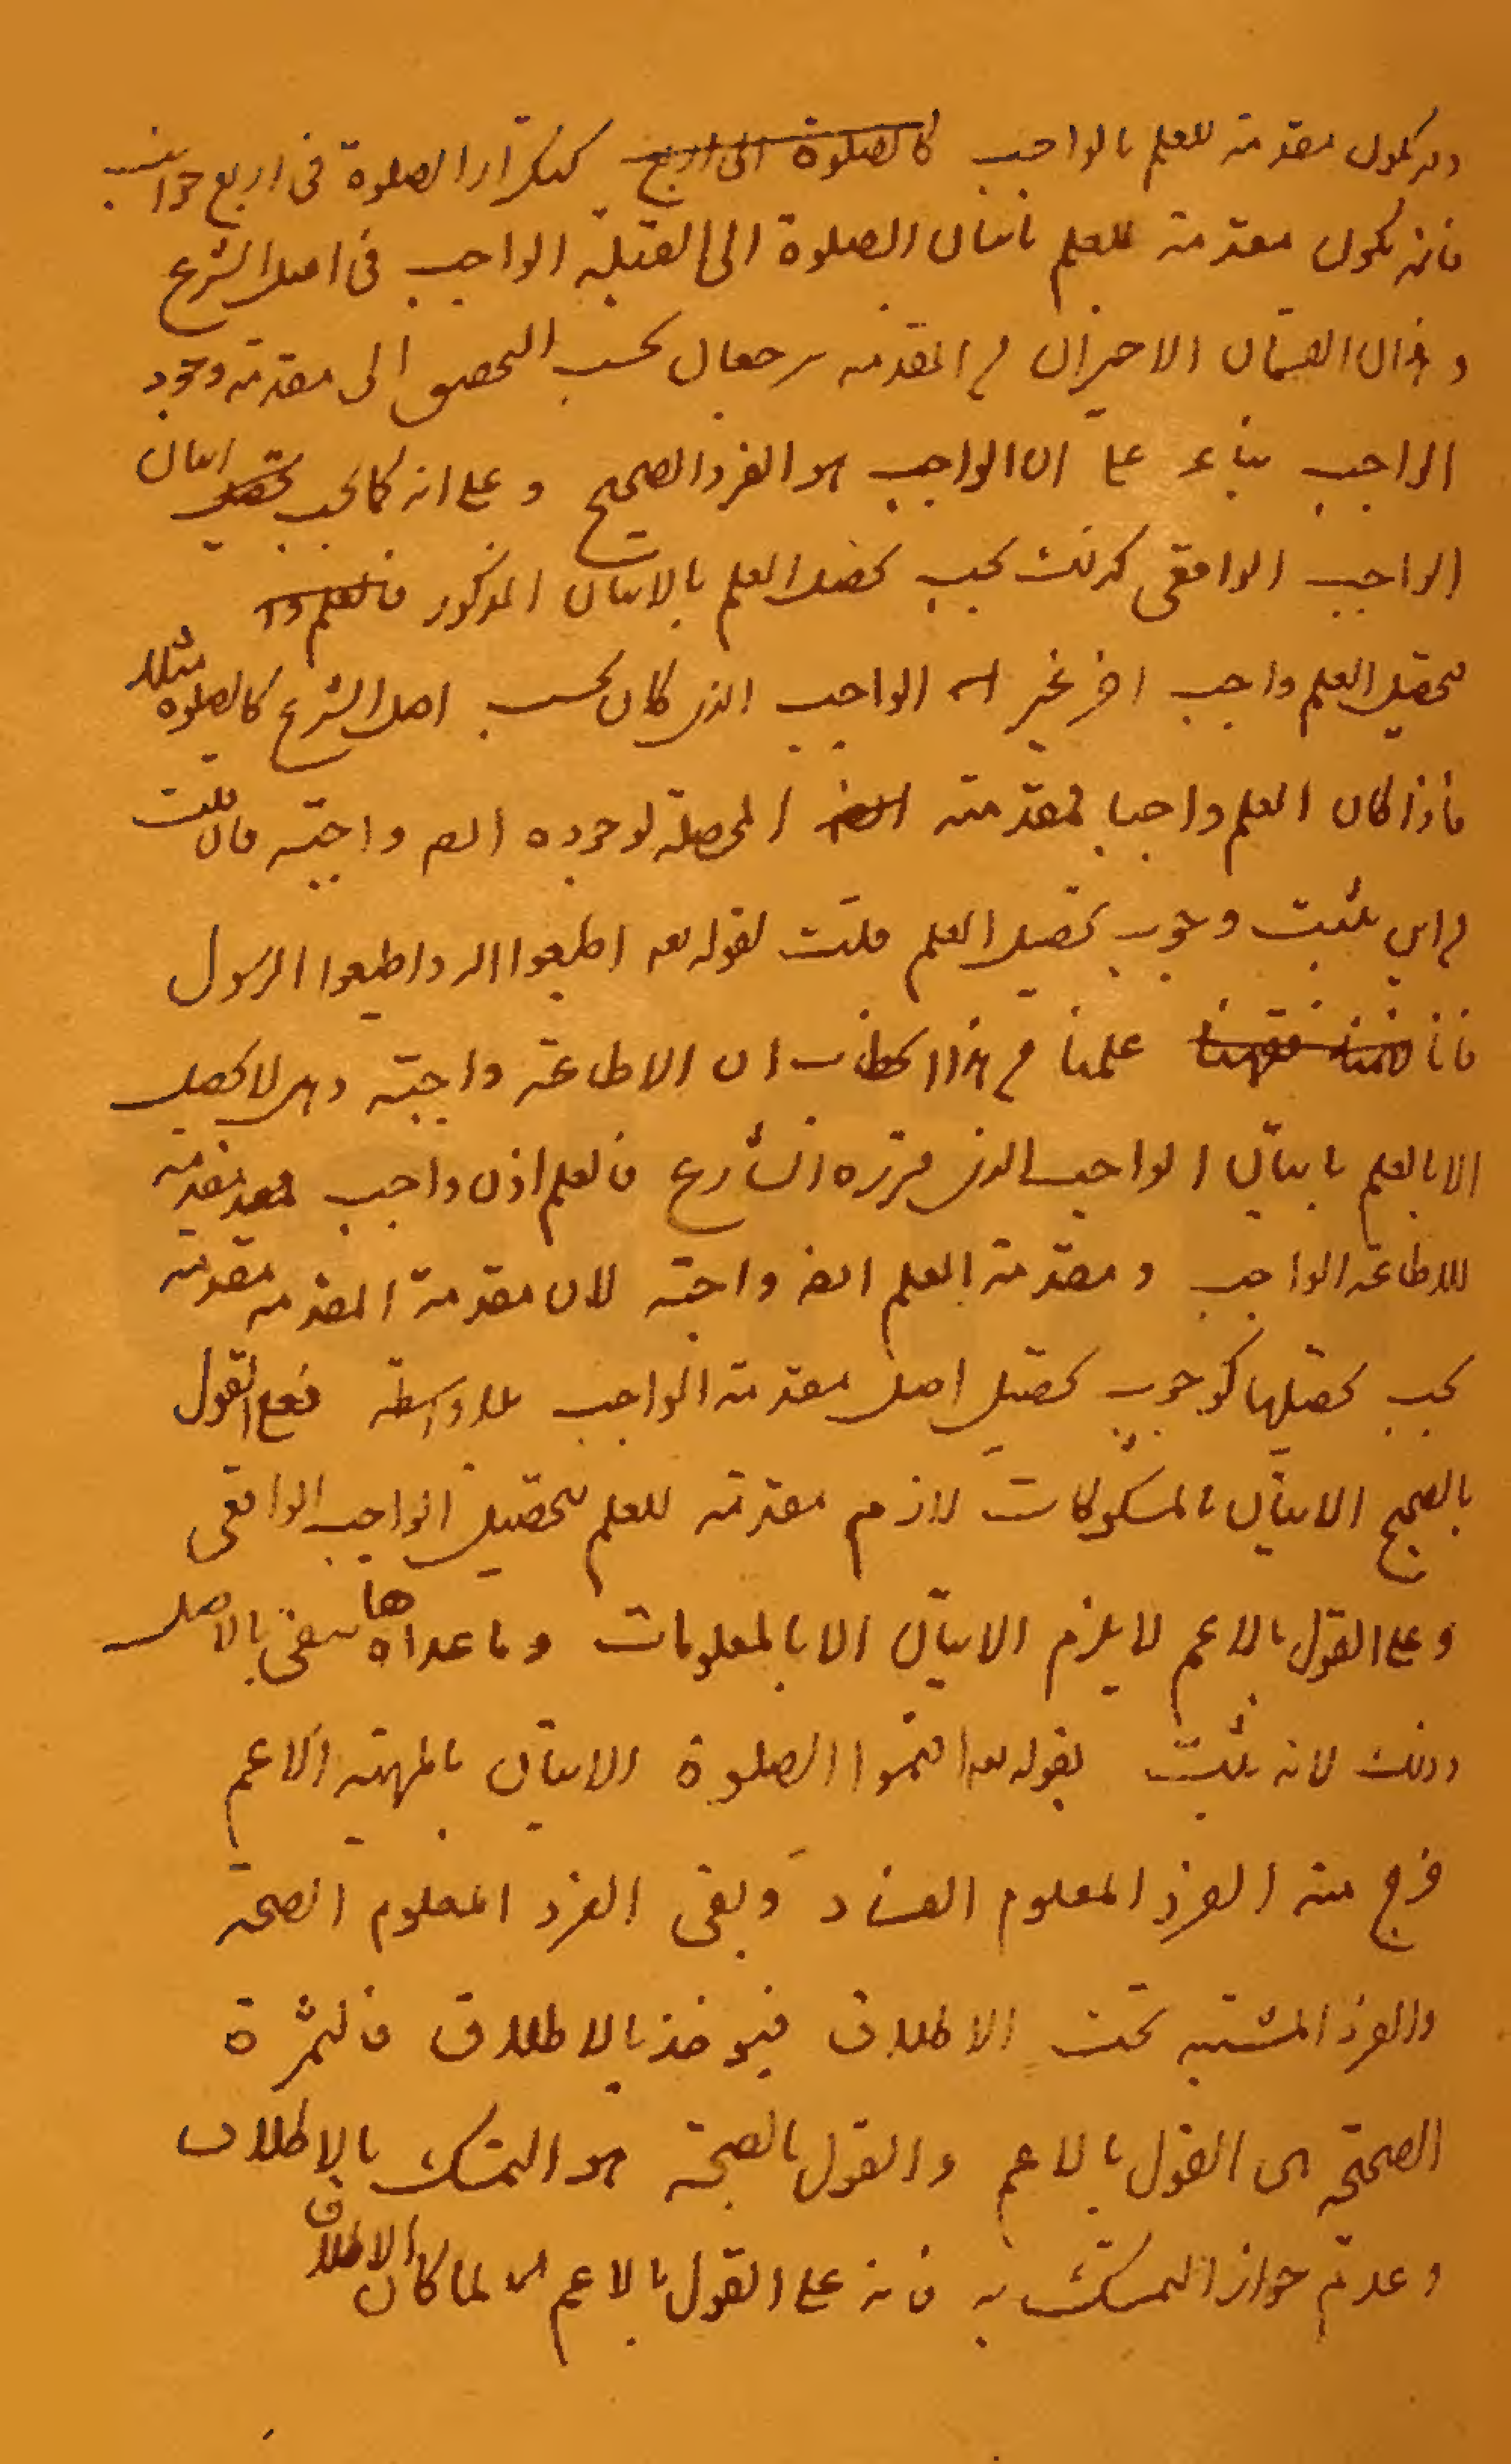 وقد يكون مقدمة للعلم بالواجب كالصلوة الى اربع كتكرار الصلوة فى اربع جوانب
فانه يكون مقدمة للعلم باتيان الصلوة الى القبلة الواجب فى اصل الشرع
وهذان القسمان الاخيران من المقدمه يرجعان بحسب التحصيل الى مقدمة وجود
الواجب بناء على ان الواجب هو الفرد الصحيح و على انه كما يجب تحصيل اتيان
الواجب الواقعى كذلك يجب تحصيل العلم بالاتيان المذكور فالعلم وا
تحصيل العلم واجب اخر غير الواجب الذى كان بحسب اصل الشرع كالصلوة مثلا
فاذا كان العلم واجبا فمقدمته ايض المحصلة لوجوده ايض واجبة فان قلت
من اين يثبت وجوب تحصيل العلم قلت لقوله تعه اطيعوا الله واطيعوا الرسول
فانا علمنا من هذا الخطاب ان الاطاعة واجبة وهى لا تحصل
الا بالعلم باتيان الواجب الذى قرره الشارع فالعلم اذن واجب مقدمة
للاطاعة الواجب و مقدمة العلم ايض واجبة لان مقدمة المقدمه مقدمة
يجب تحصيلها كوجوب تحصيل اصل مقدمة الواجب بلا واسطة فعلى القول
بالصحيح الاتيان بالمشكوكات لازم مقدمة للعلم بتحصيل الواجب الواقعى
و على القول بالاعم لا يلزم الاتيان الا بالمعلومات و ما عداها ينفى بالاصل
وذلك لانه يثبت بقوله تعه اقيموا الصلوة الاتيان بالمهية الاعم
خرج منه الفرد المعلوم الفساد و بقى الفرد المعلوم الصحة
والفرد المشتبه تحت الاطلاق فيوخذ بالاطلاق فالثمرة
الصحيحة بين القول بالاعم والقول بالصحة هو التمسك بالاطلاق
و عدم جواز التمسك به فانه على القول بالاعم لما كان الاطلاق